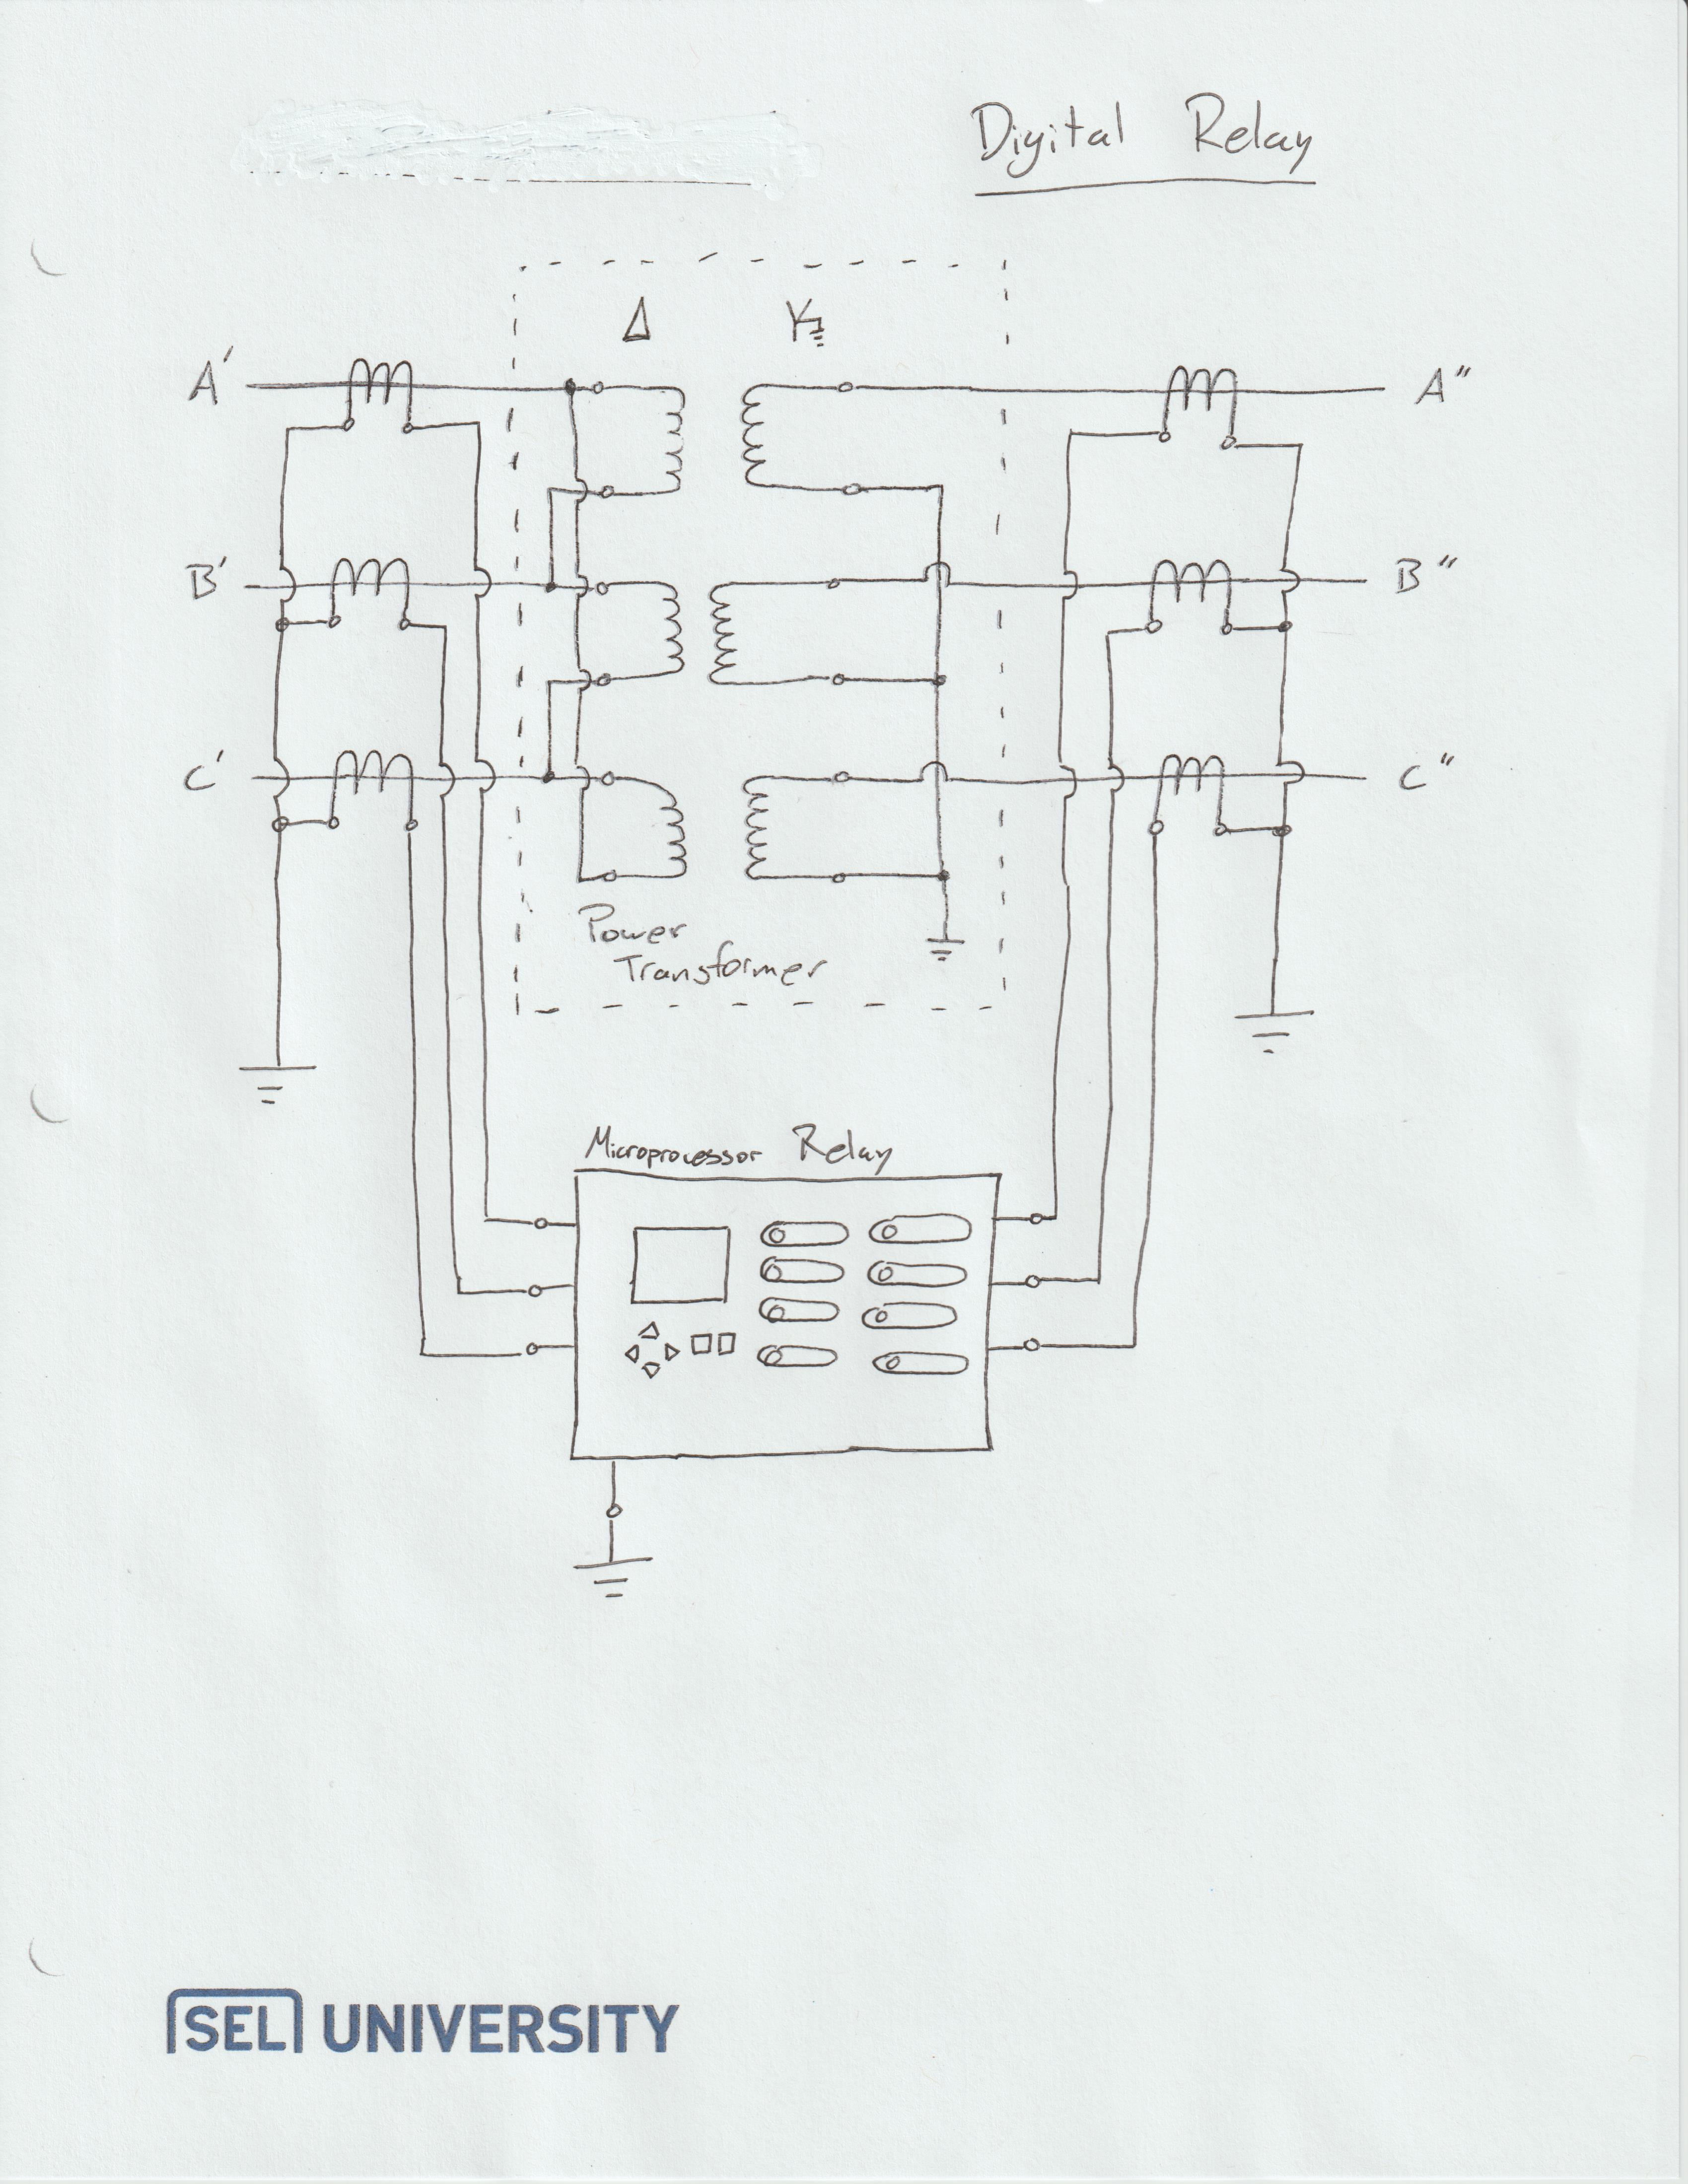 Digital Relay
Δ Y
A' A"
B' B"
C' C"
Power
Transformer
Microprocessor Relay
SEL UNIVERSITY